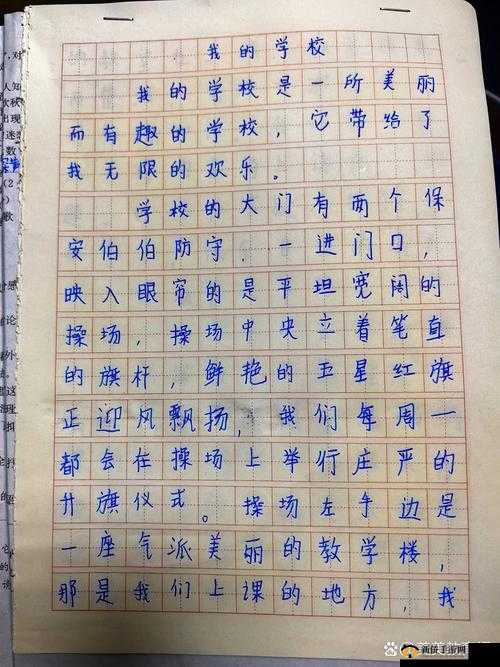 我的学校
我的学校是一所美丽
而有趣的学校，它带给了
我无限的欢乐。
学校的大门有两个保
安伯伯防守，一进门口，
映入眼帘的是平坦宽阔的
操场，操场中央立着笔直
的旗杆，鲜艳的五星红旗
正迎风飘扬，我们每周一
都会在操场上举行庄严的
升旗仪式。操场左手边是
一座气派美丽的教学楼，
那是我们上课的地方，我